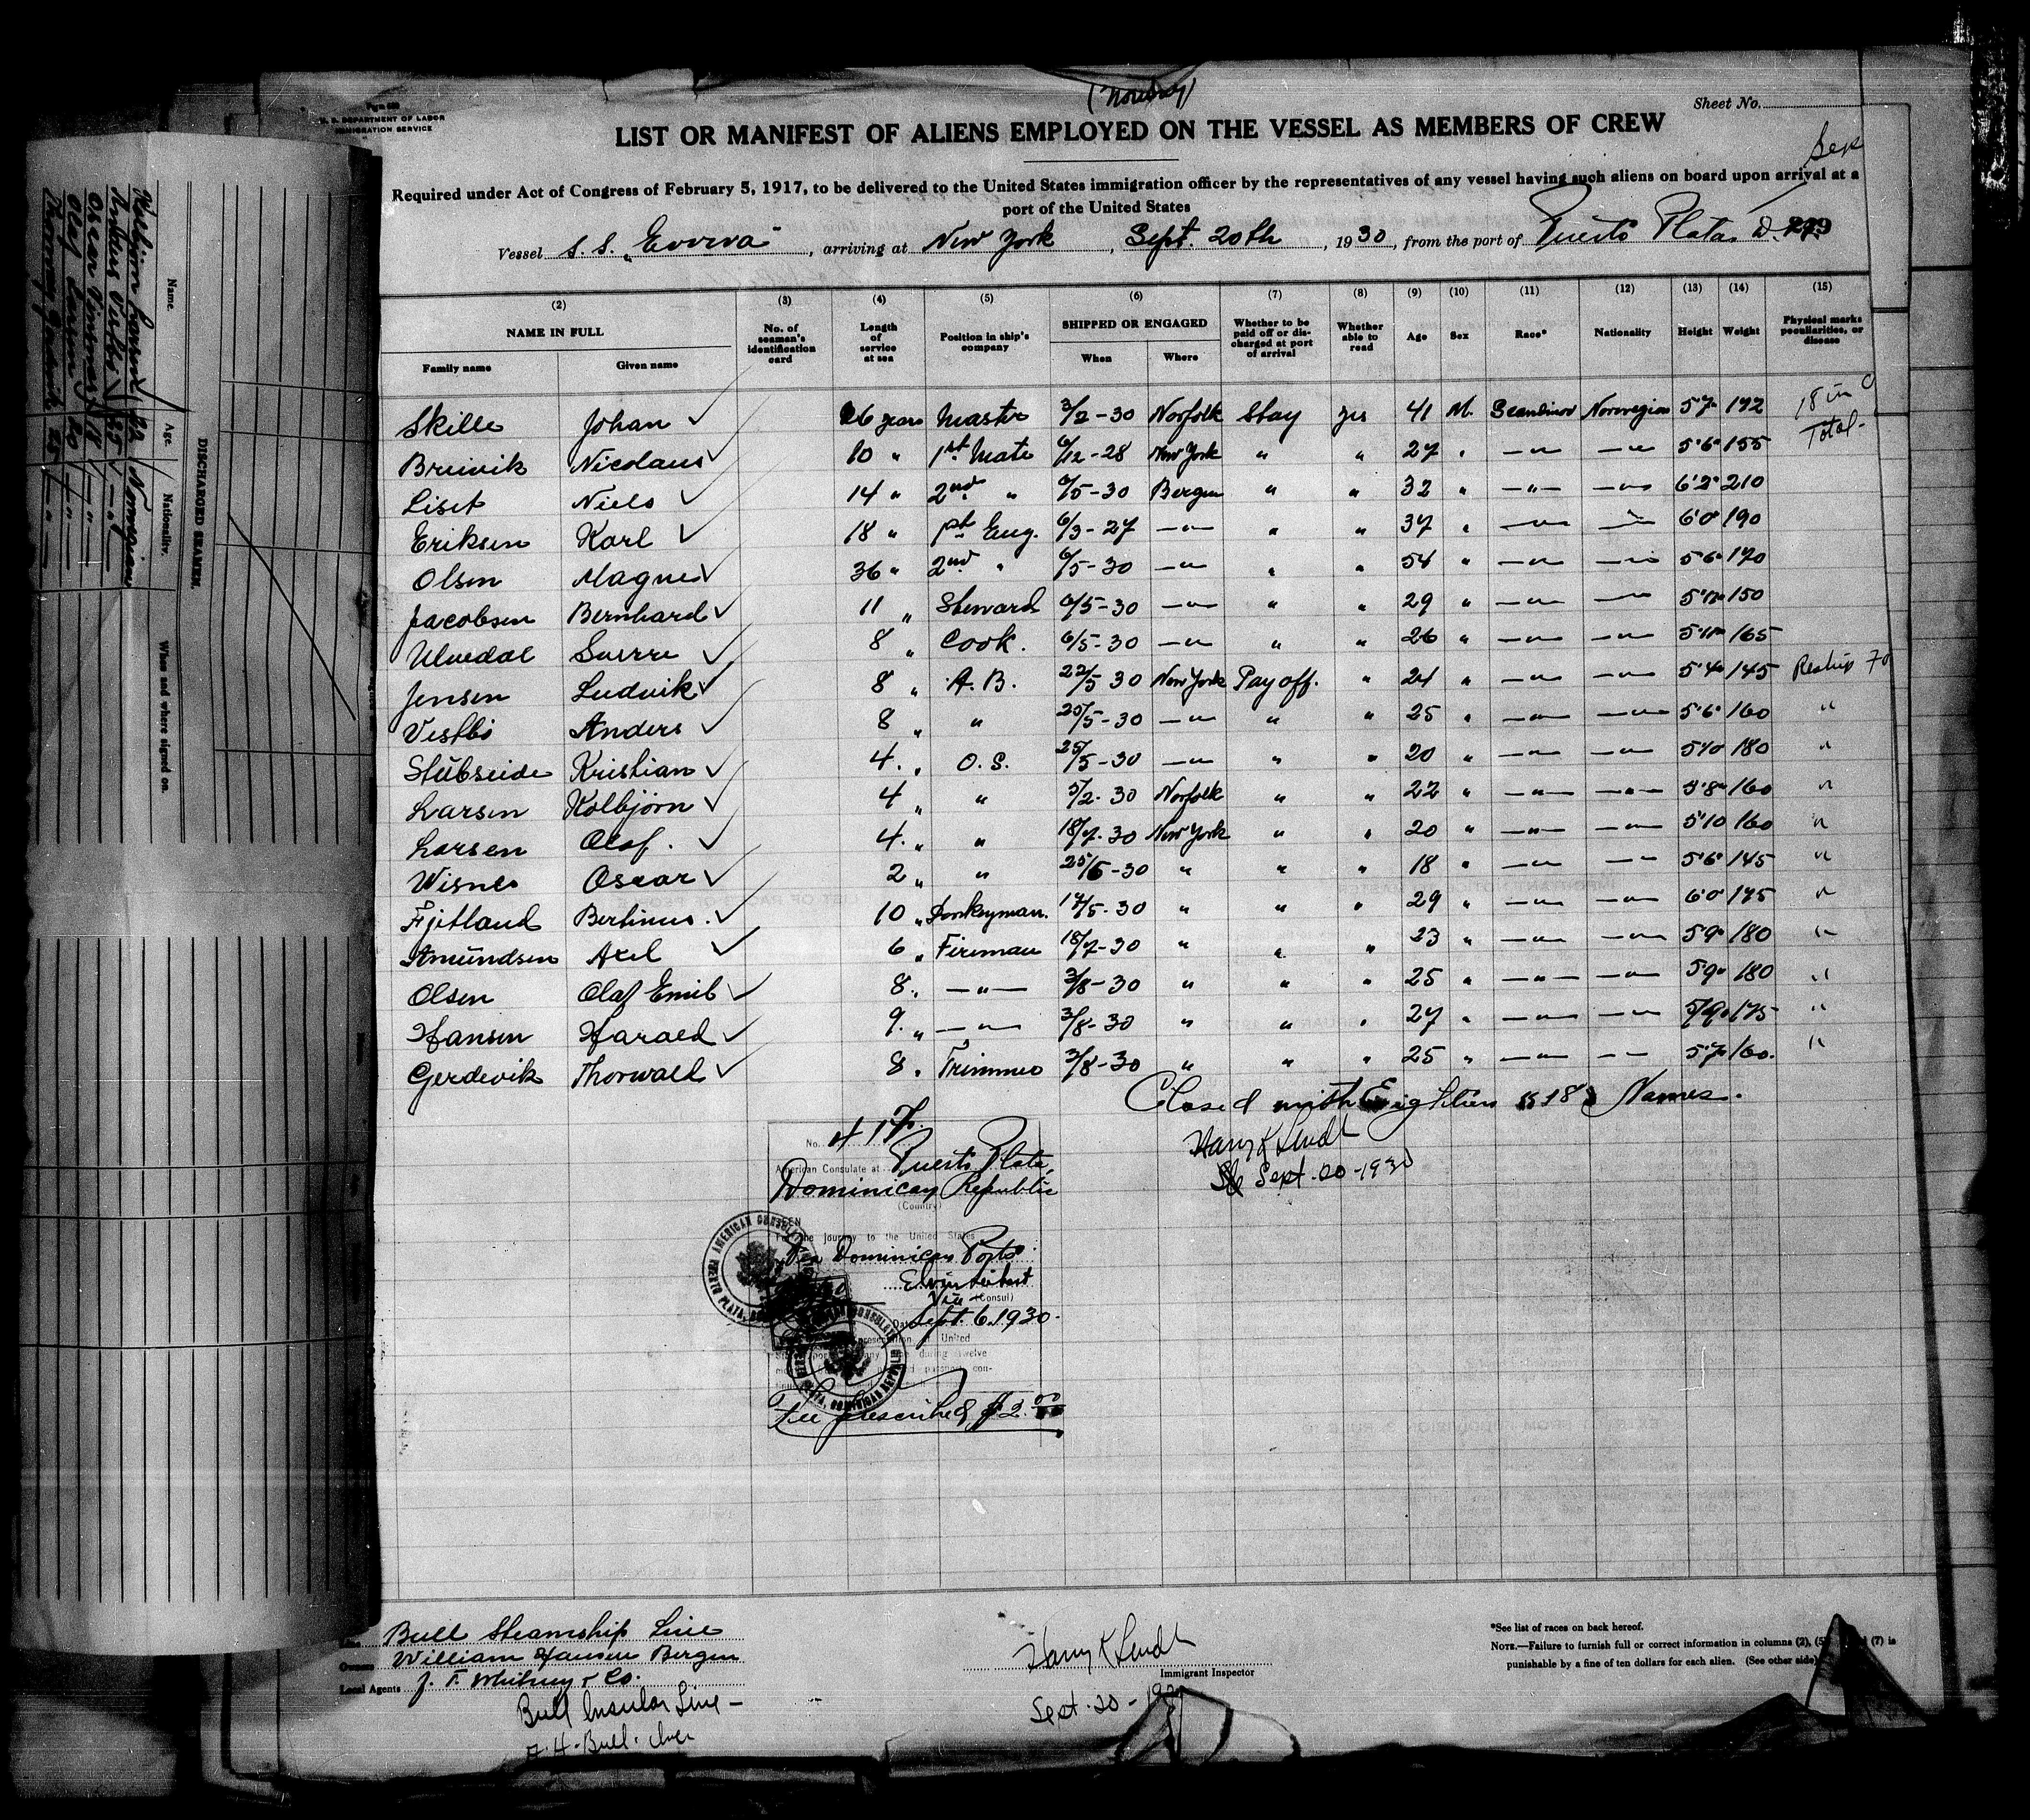 (Norway)
Sheet No.
U. S. DEPARTMENT OF LABOR
IMMIGRATION SERVICE
LIST OR MANIFEST OF ALIENS EMPLOYED ON THE VESSEL AS MEMBERS OF CREW
Required under Act of Congress of February 5, 1917, to be delivered to the United States immigration officer by the representatives of any vessel having such aliens on board upon arrival at a
port of the United States
Vessel S.S. "Evviva", arriving at New York, Sept. 20th, 1930, from the port of Puerto Plata D.
(2) (3) (4) (5) (6) (7) (8) (9) (10) (11) (12) (13) (14) (15)
NAME IN FULL No. of seaman's identification card Length of service at sea Position in ship's company SHIPPED OR ENGAGED Whether to be paid off or discharged at port of arrival Whether able to read Age Sex Race* Nationality Height Weight Physical marks peculiarities, or disease
Family name Given name When Where
Skille Johan ✓ 26 years Master 3/2-30 Norfolk Stay yes 41 M. Scandinav Norwegian 5'7" 172 18 in
Total-
Breivik Nicolaus ✓ 10 " 1st Mate 6/12-28 New York " " 27 " —"— —"— 5'6" 155
Liset Niels ✓ 14 " 2nd " 6/5-30 Bergen " " 32 " —"— —"— 6'2" 210
Eriksen Karl ✓ 18 " 1st Eng. 6/3-27 —"— " " 37 " —"— —"— 6'0" 190
Olsen Magne ✓ 36 " 2nd " 6/5-30 —"— " " 54 " —"— —"— 5'6" 170
Jacobsen Bernhard ✓ 11 " Steward 6/5-30 —"— " " 29 " —"— —"— 150
Ulvedal Sverre ✓ 8 " Cook. 6/5-30 —"— " " 26 " —"— —"— 165
Jensen Ludvik ✓ 8 " A.B. 22/5 30 New York Pay off. " 24 " —"— —"— 5'4" 145 Reship
Vestbö Anders ✓ 8 " " 20/5-30 —"— " " 25 " —"— —"— 5'6" 160 "
Stubseide Kristian ✓ 4 " O.S. 25/5-30 —"— " " 20 " —"— —"— 5'10 180 "
Larsen Kolbjörn ✓ 4 " " 5/2-30 Norfolk " " 22 " —"— —"— 5'8" 160 "
Larsen Olaf. ✓ 4 " " 18/7-30 New York " " 20 " —"— —"— 5'10 160 "
Wisnes Oscar ✓ 2 " " -30 " " " 18 " —"— —"— 5'6" 145 "
Fjetland Bertinus. ✓ 10 " Donkeyman. 17/5-30 " " " 29 " —"— —"— 6'0" 175 "
Amundsen Axel ✓ 6 " Fireman 18/7-30 " " " 23 " —"— —"— 5'9" 180 "
Olsen Olaf Emil ✓ 8 " —"— 3/8-30 " " " 25 " —"— —"— 5'9" 180 "
Hansen Harald ✓ 9 " —"— 3/8-30 " " " 27 " —"— —"— 5'9" 175 "
Gerdevik Thorwald ✓ 8 " Trimmer 3/8-30 " " " 25 " —"— —"— 5'7" 160. "
Closed with Eighteen 18 Names.
Harry K Lendt
Sept. 20-1930
No. 417.
American Consulate at Puerto Plata,
Dominican Republic
(Country)
SEEN
For the journey to the United States
Via Dominican Ports
Vice (Consul)
Date Sept. 6, 1930.
Fee prescribed $2.00
AMERICAN CONSULATE
DISCHARGED SEAMEN.
Name. Age. Nationality. When and where signed on.
Kolbjörn Larsen 22 Norwegian
Anders Vestbö 25 —"—
Oscar Wisnes 18 —"—
Olaf Larsen 20 —"—
Thorwald Gerdevik 25 —"—
Line Bull Steamship Line
Owners William Hansen Bergen
Local Agents J. F. Whitney & Co.
Bull Insular Line-
Harry K Lendt
Immigrant Inspector
Sept-20-
*See list of races on back hereof.
NOTE.—Failure to furnish full or correct information in columns (2), (5) (7) is
punishable by a fine of ten dollars for each alien. (See other side)